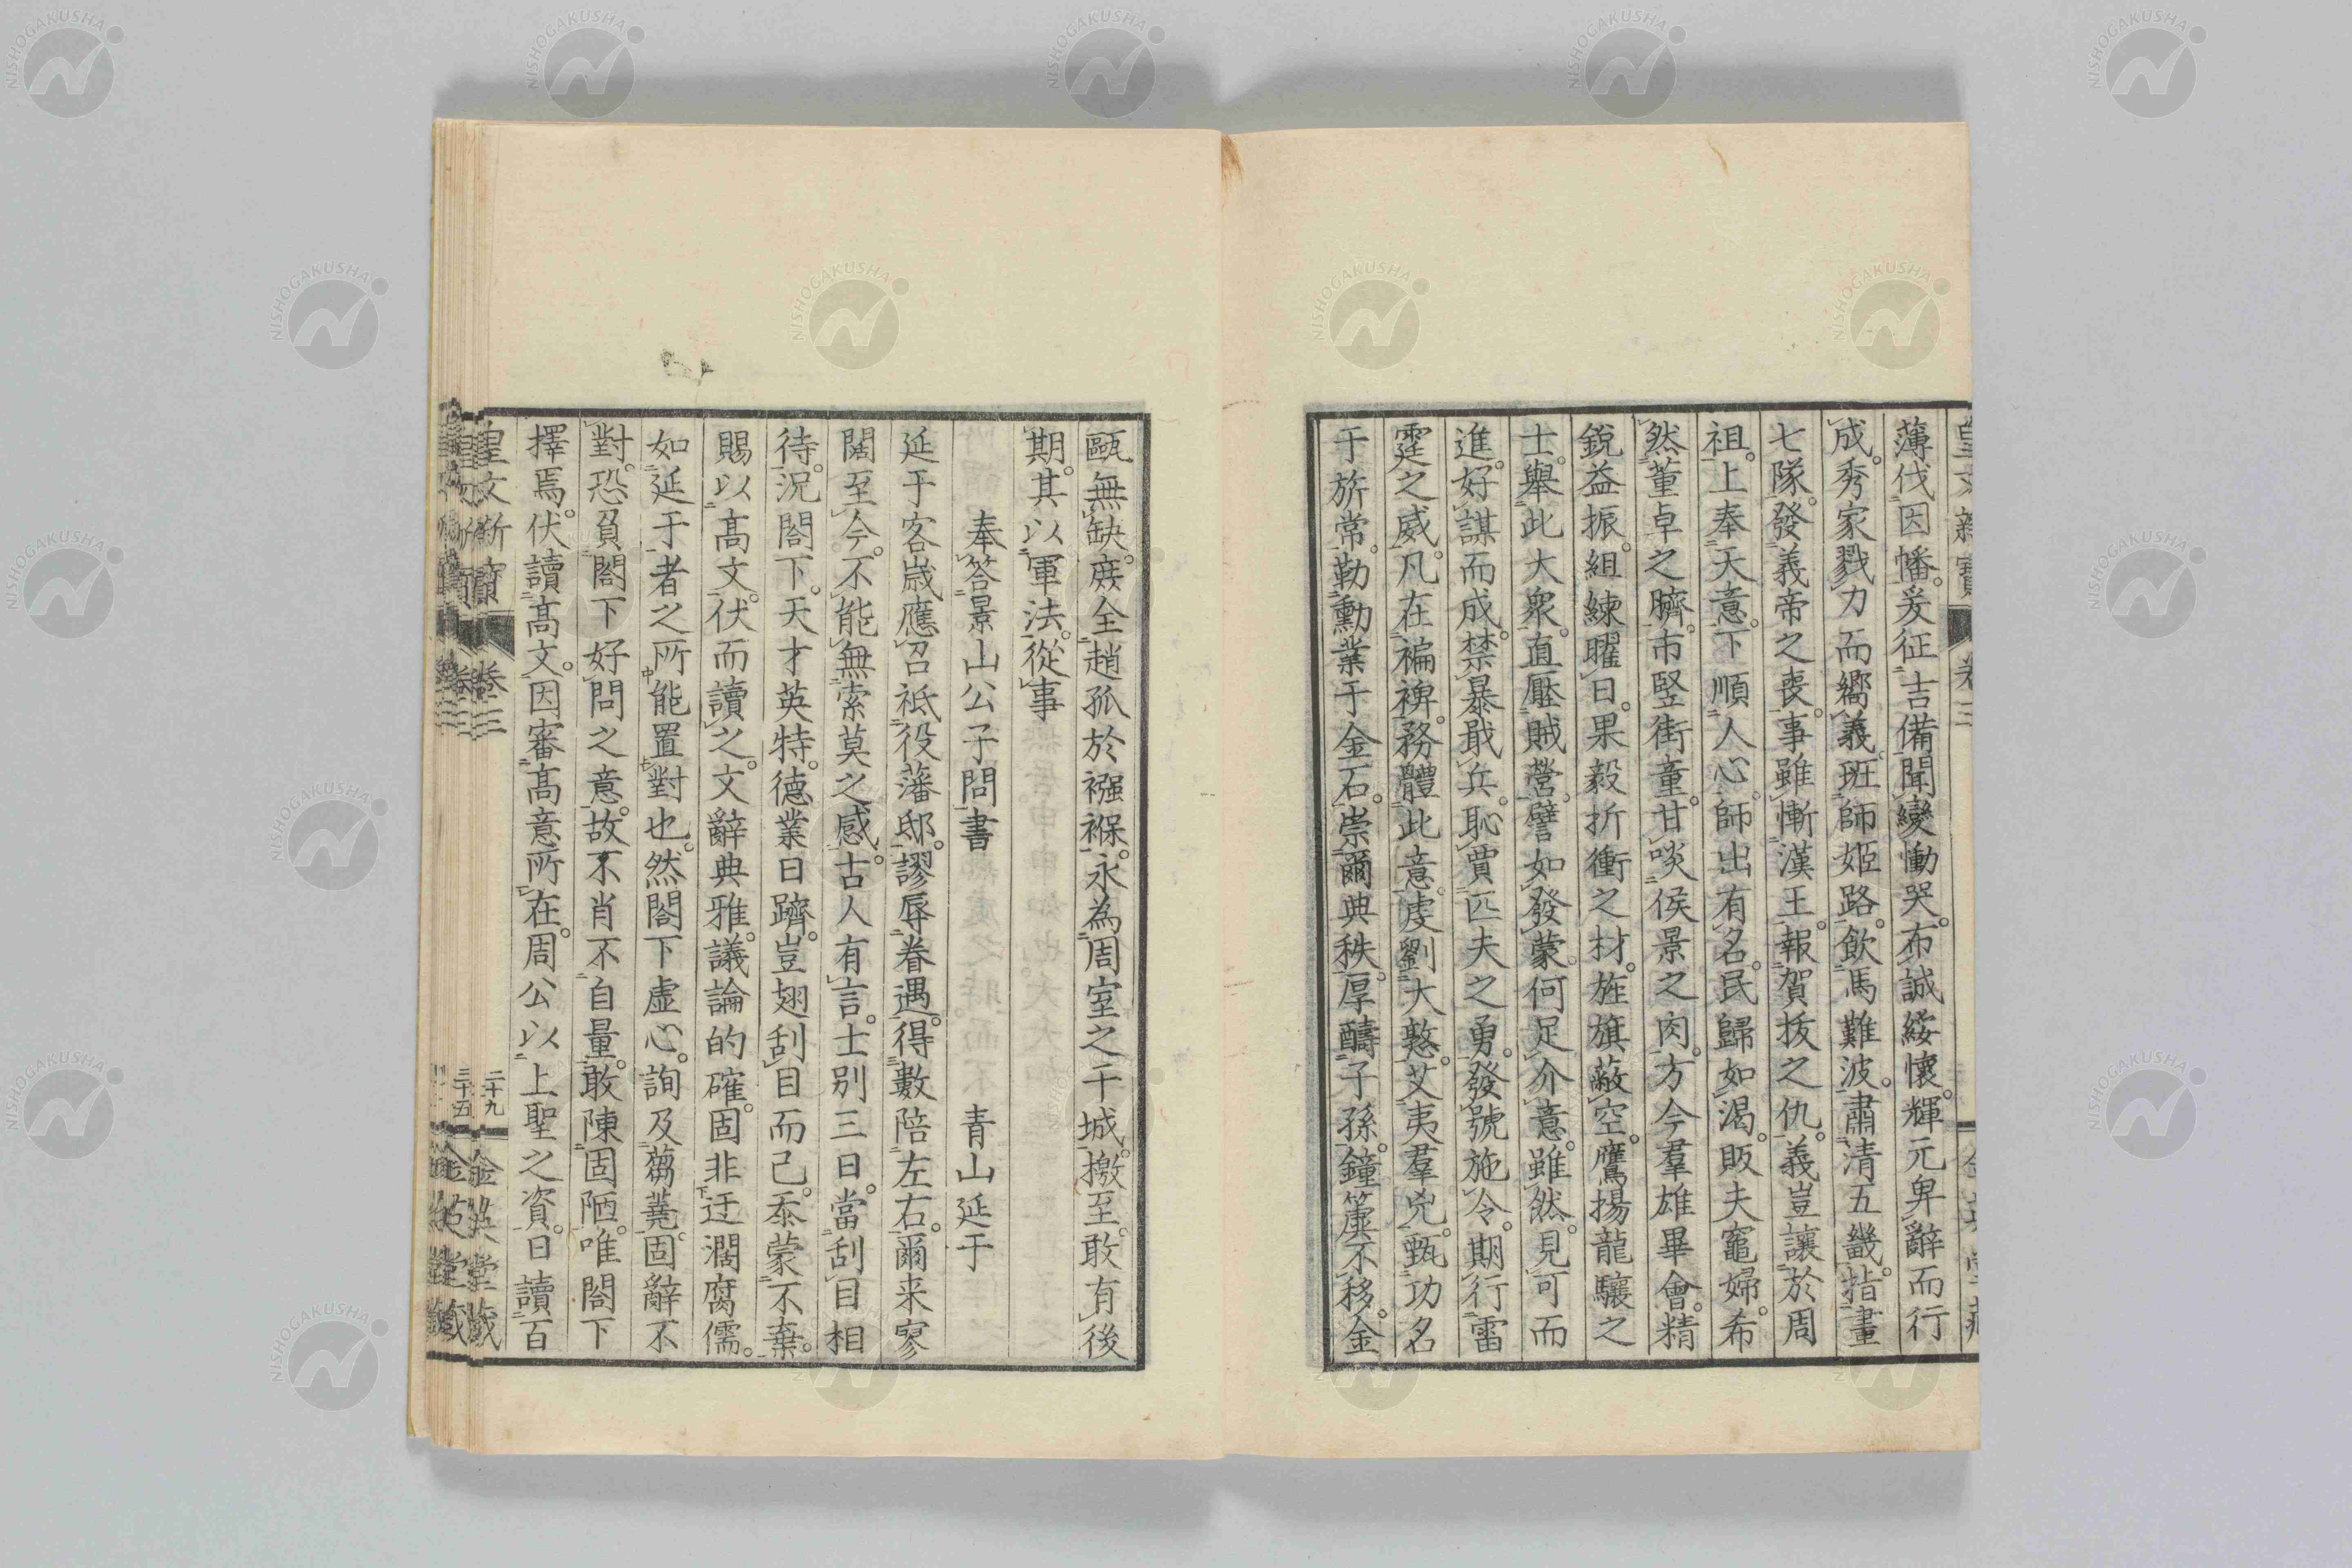 薄伐因幡。爰征吉備聞變慟哭。布誠綏懷。輝元卑辭而行
成。秀家戮力而嚮義。班師姬路。飲馬難波。肅清五畿。指畫
七隊。發義帝之喪。事雖慚漢王。報賀拔之仇。義豈讓於周
祖。上奉天意。下順人心。師出有名。民歸如渴。販夫竈婦。希
然董卓之臍。市竪街童。甘啖侯景之肉。方今羣雄畢會。精
銳益振。組練曜日。果毅折衝之材。旌旗蔽空。鷹揚龍驤之
士。舉此大衆。直壓賊營。譬如發蒙。何足介意。雖然見可而
進。好謀而成。禁暴戢兵。恥賈匹夫之勇。發號施令。期行雷
霆之威。凡在褊裨。務體此意。虔劉大憝。艾夷羣兇。甄功名
于旂常。勒勳業于金石。崇爾典秩。厚疇子孫。鐘簴不移。金
甌無缺。庶全趙孤於襁褓。永為周室之干城。檄至。敢有後
期。其以軍法。從事
奉答景山公子問書　青山延于
延于客歲應召祗役藩邸。謬辱眷遇。得數陪左右。爾来寥
闊至今。不能無索莫之感。古人有言。士別三日。當刮目相
待。況閤下。天才英特。德業日躋。豈翅刮目而已。忝蒙不棄。
賜以高文。伏而讀之。文辭典雅。議論的確。固非迂濶腐儒。
如延于者之所能置對也。然閤下虛心。詢及蒭蕘。固辭不
對。恐負閤下好問之意。故不肖不自量。敢陳固陋。唯閤下
擇焉。伏讀高文。因審高意所在。周公以上聖之資。日讀百
皇文新寶
卷三
二十九
金英堂藏
三十五
NISHOGAKUSHA